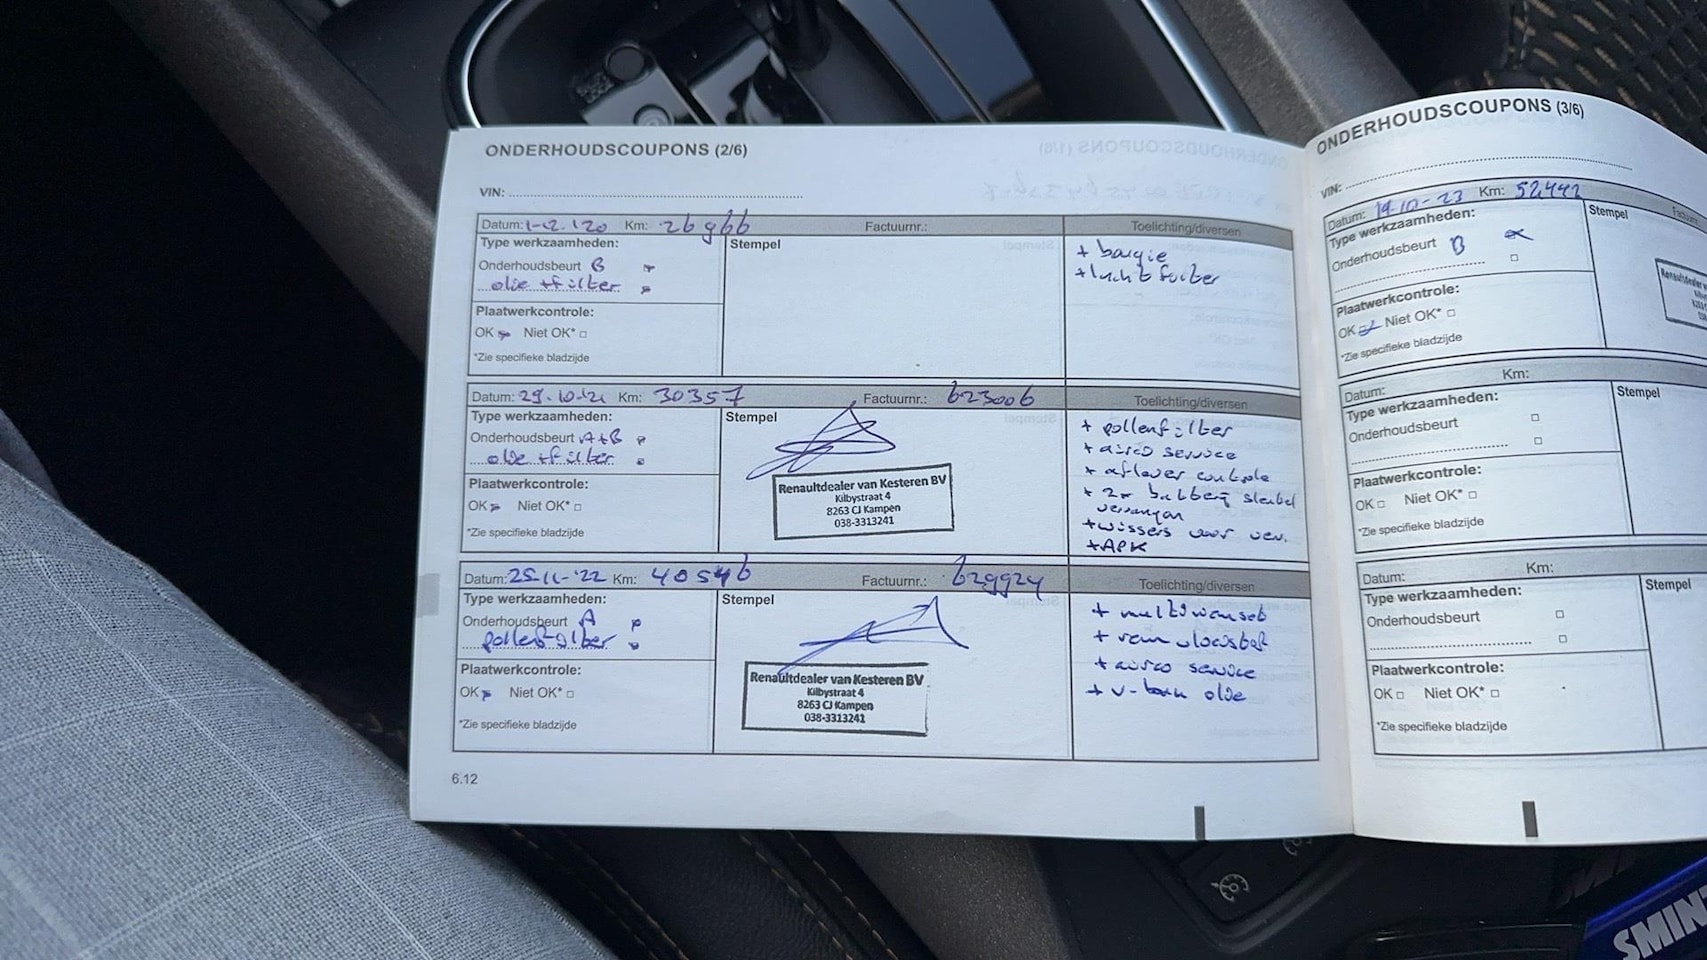 ONDERHOUDSCOUPONS (2/6)
VIN:
Datum: 1-12-'20 Km: 26966 Factuurnr.: Toelichting/diversen
Type werkzaamheden: Stempel
+ bougie
Onderhoudsbeurt B
+ luchtfilter
olie + filter
Plaatwerkcontrole:
OK Niet OK*
*Zie specifieke bladzijde
Datum: 29-10-'21 Km: 30357 Factuurnr.: 623006 Toelichting/diversen
Type werkzaamheden: Stempel
+ pollenfilter
Onderhoudsbeurt A+B
+ airco service
olie + filter
+ aflever controle
Plaatwerkcontrole:
+ 2x batterij sleutel
vervangen
OK Niet OK*
+ wissers voor ver.
*Zie specifieke bladzijde
+ APK
Renaultdealer van Kesteren BV
Kilbystraat 4
8263 CJ Kampen
038-3313241
Datum: 25-11-'22 Km: 40546 Factuurnr.: 629924 Toelichting/diversen
Type werkzaamheden: Stempel
+ multiwanset
Onderhoudsbeurt A
pollenfilter
+ remvloeistof
Plaatwerkcontrole:
+ airco service
OK Niet OK*
+ olie
*Zie specifieke bladzijde
Renaultdealer van Kesteren BV
Kilbystraat 4
8263 CJ Kampen
038-3313241
6.12
ONDERHOUDSCOUPONS (3/6)
VIN:
Datum: 19-10-23 Km: 52442
Type werkzaamheden: Stempel
Onderhoudsbeurt B
Plaatwerkcontrole:
OK Niet OK*
*Zie specifieke bladzijde
Renaultdealer
Datum: Km:
Type werkzaamheden: Stempel
Onderhoudsbeurt
Plaatwerkcontrole:
OK Niet OK*
*Zie specifieke bladzijde
Datum: Km:
Type werkzaamheden: Stempel
Onderhoudsbeurt
Plaatwerkcontrole:
OK Niet OK*
*Zie specifieke bladzijde
SMIN